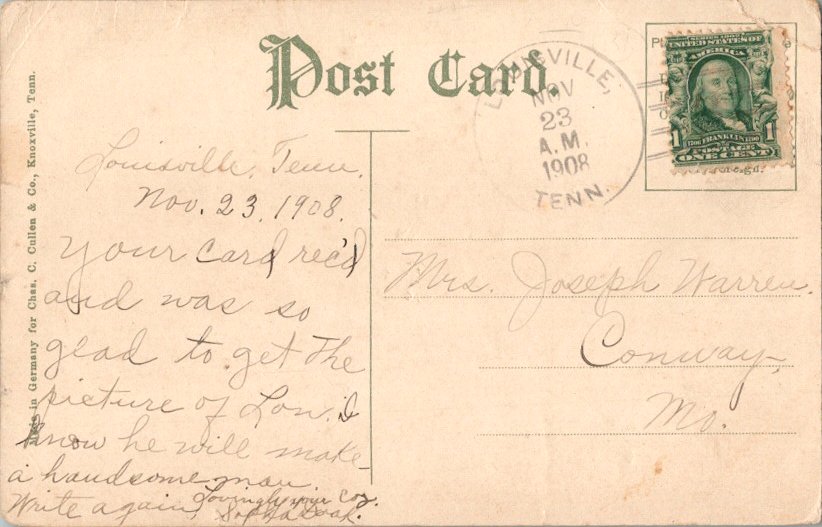 Post Card.
LOUISVILLE,
NOV
23
A.M.
1908
TENN.
SERIES 1902
UNITED STATES OF
AMERICA
1706 FRANKLIN 1790
1 POSTAGE 1
ONE CENT
Made in Germany for Chas. C. Cullen & Co., Knoxville, Tenn.
Louisville, Tenn.
Nov. 23, 1908.
Your card rec'd
and was so
glad to get the
picture of Lon. I
know he will make
a handsome man.
Write again,
Lovingly your Coz.
Mrs. Joseph Warren.
Conway,
Mo.